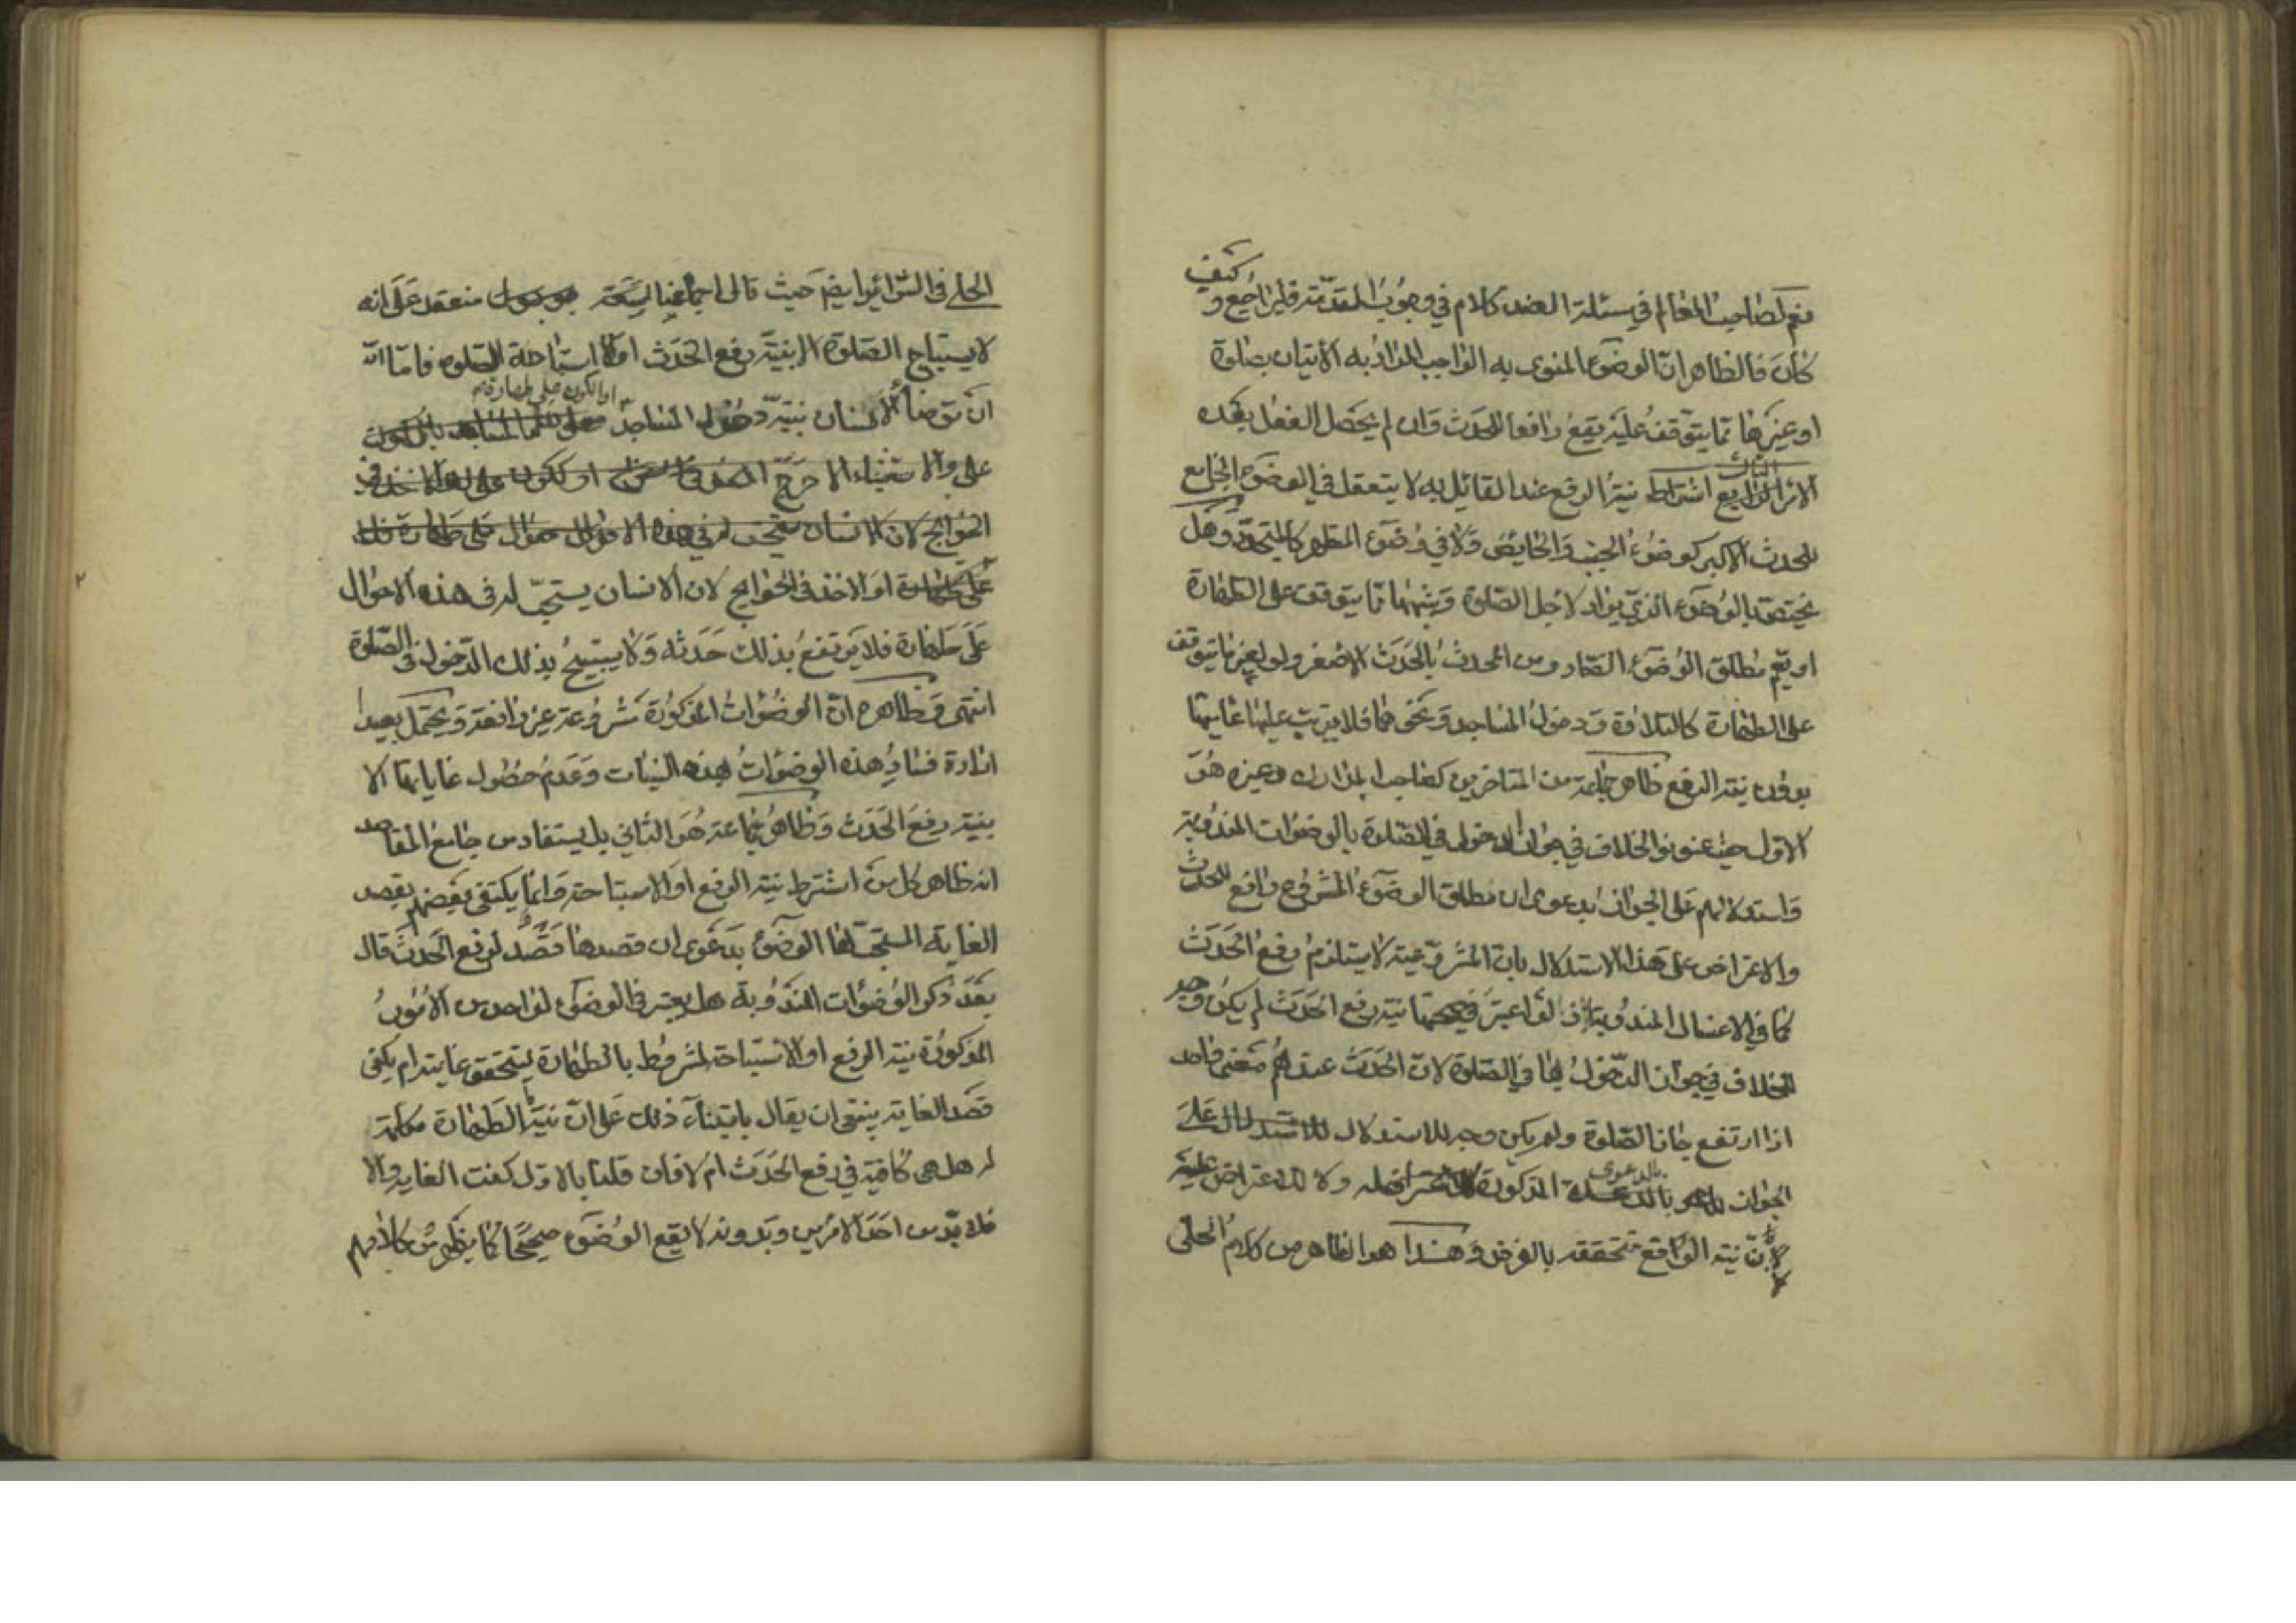 نعم لصاحب المعالم في مسئلة الضد كلام في وجوب المقدمة فليراجع وكيف
كان فالظاهر ان الوضوء المنوى به الواجب المراد به الاتيان بصلوة
او غيرها مما يتوقف عليه يقع رافعا للحدث وان لم يحصل الفعل بعده
الامر الثالث اشتراط نية الرفع عند القائل به لا يتعقل في الوضوء الجامع
للحدث الاكبر كوضوء الجنب والحايض ولا في وضوء المتطهر كالمتجدد وهل
يختص بالوضوء الذي يراد لاجل الصلوة وشبهها مما يتوقف على الطهارة
او يعم مطلق الوضوء الصادر من المحدث بالحدث الاصغر ولو لغير ما يتوقف
على الطهارة كالتلاوة ودخول المساجد ونحوهما فلا يترتب عليها غاياتها
بدون نية الرفع ظاهر جماعة من المتاخرين كصاحب المدارك وغيره هو
الاول حيث عنونوا الخلاف في جواز الدخول في الصلوة بالوضوات المندوبة
واستدلالهم على الجواز بدعوى ان مطلق الوضوء المشروع رافع للحدث
والاعتراض على هذا الاستدلال بان المشروعية لا يستلزم رفع الحدث
كما في الاغسال المندوبة اذ لو اعتبر في صحتها نية رفع الحدث لم يكن وجه
للخلاف في جواز الدخول بها في الصلوة لان الحدث عندهم معنى واحد
اذا ارتفع جاز الصلوة ولم يكن وجه للاستدلال على
الجواز بالدعوى المذكورة ولا للاعتراض عليه
لان نية الرافع متحققة بالفرض وهذا هو الظاهر من كلام الحلى
الحلي في السرائر ايضا حيث قال اجماعنا منعقد على انه
لا يستباح الصلوة الا بنية رفع الحدث او استباحة الصلوه فاما انه
ان توضأ الانسان بنية دخول المساجد او الكون على طهارة
الحوائج لان الانسان
او الاخذ في الحوايج لان الانسان يستحب له في هذه الاحوال
على طهارة فلا يرتفع بذلك حدثه ولا يستبيح بذلك الدخول في الصلوة
انتهى وظاهره ان الوضوات المذكورة مشروعة غير رافعة ويحتمل بعيدا
ارادة فساد هذه الوضوات بهذه النيات وعدم حصول غاياتها الا
بنية رفع الحدث وظاهر جماعة هو الثاني بل يستفاد من جامع المقاصد
انه ظاهر كل من اشترط نية الرفع او الاستباحة وانما يكتفي بعضهم بقصد
الغاية المستحب لها الوضوء بدعوى ان قصدها قصد لرفع الحدث قال
بعد ذكر الوضوات المندوبة هل يعتبر في الوضوء لواحد من الامور
المذكورة نية الرفع او الاستباحة لمشروط بالطهارة ليتحقق غايته ام يكفى
قصد الغاية ينبغى ان يقال بابتناء ذلك على ان نية الطهارة مكملة
له هل هى كافية في رفع الحدث ام لا فان قلنا بالاول كفت الغاية والا
فلا بد من احد الامرين وبدونه لا يقع الوضوء صحيحا كما يظهر من كلامهم